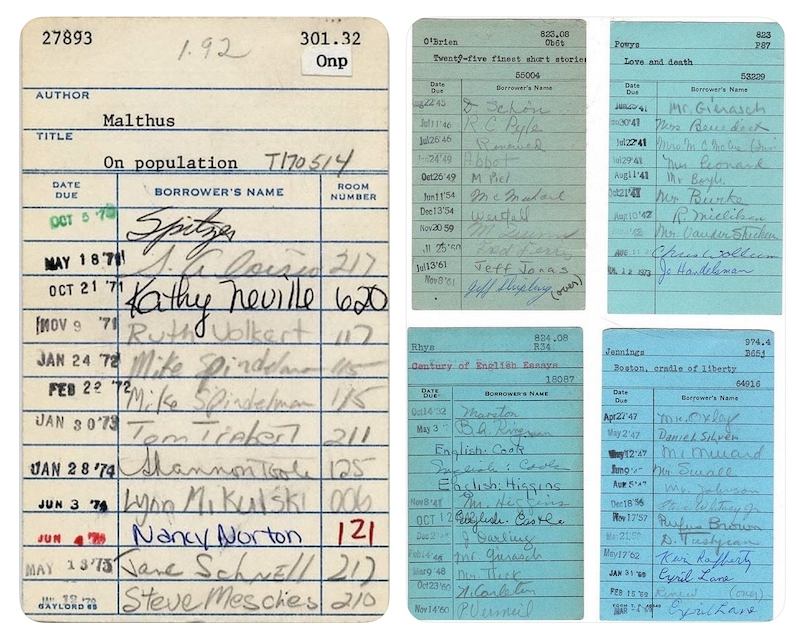 27893 1.92 301.32
Onp
AUTHOR
Malthus
TITLE
On population T170514
DATE DUE BORROWER'S NAME ROOM NUMBER
OCT 5 '70 Spitzer
MAY 18 '71 217
OCT 21 '71 Kathy Neville 620
NOV 9 '71 Ruth Volkert 117
JAN 24 '72 Mike Spindelman 115
FEB 22 '72 Mike Spindelman 115
JAN 30 '73 Tom Tiebert 211
JAN 28 '74 Shannon Toole 125
JUN 3 '74 Lynn Mikulski 006
JUN 4 Nancy Norton 121
MAY 13 '75 Jane Schnell 217
Steve Meschies 210
GAYLORD 65
823.08
O'Brien Ob6t
Twenty-five finest short stories
55004
Date Due Borrower's Name
Aug22'45 D. Schön
Jul11'46 R C Pyle
Jul26'46 Renewed
24'49 Abbot
Oct26'49 M Piel
Jun11'54 McMichael
Dec13'54 Westfall
Nov20 59
25'60 Ted Perry
Jul13'61 Jeff Jonas
Nov8'61 Jeff (over)
823
Powys P87
Love and death
53229
Date Due Borrower's Name
Jun25'41 Mr. Gierasch
Jun30'41 Mrs Benedict
Jul22'41 Mrs. M.
Jul29'41 Mrs Leonard
Aug11'41 Mr Boyle
Oct21'41 Mr Burke
Aug10'42 R. Millikan
Mr. Vander
Chris
12 1973 Jo Handelsman
824.08
Rhys R34
Century of English Essays
18087
DATE DUE BORROWER'S NAME
Oct14'32 Marston
May 3 B A
English: Cook
English: Cook
English: Higgins
Nov8'41 Mr. Higgins
OCT 12 English: Castle
J Darling
Feb14'46 Mr. Gierasch
Mar9'48 Mrs. Thick
Oct23'50 N. Carleton
Nov14'60 P Vermeil
974.4
Jennings B65j
Boston, cradle of liberty
64916
Date Due Borrower's Name
Apr27'47 Mr. Oxley
May2'47 Daniel Silver
May12'47 M. Millard
Jun9'47 Mr. Sewall
Aug5'47 Mr. Johnson
Dec18'56
Nov17'57 Rufus Brown
21'59 D.
May17'62 Ken Rafferty
JAN 31 '69 Cyril Lane
FEB 15 '69 Renew (over)
MAR Cyril Lane